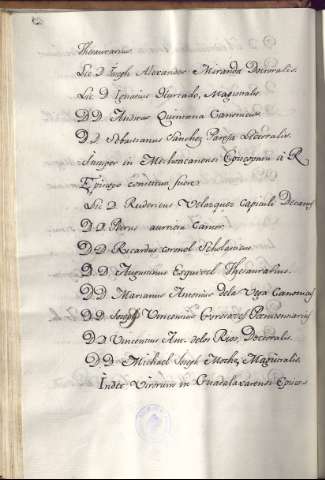 Thesaurarius.
Lic D Joseph Alexander Miranda Doctoralis.
Lic D Ignatius Hurtado, Magistralis.
D D Andreas Quintana Canonicus
D D Sebastianus Sanchez Pareja Lectoralis.
Semper in Mechoacanensi Episcopatu à R
Episcopo constituti fuere
Lic D Rudericus Velazquez Capituli Decanus
D D Petrus Cantor.
D D Ricardus Coronol Scholasticus
D D Augustinus Esquivel Thesaurarius.
D D Marianus Antonius dela Vega Canonicus
D D Joseph Vincentius Poenitentiarius
D D Vincentius Ant. delos Rios, Doctoralis.
D D Michael Joseph Moche, Magistralis.
Index Virorum in Guadalaxarensi Episco-